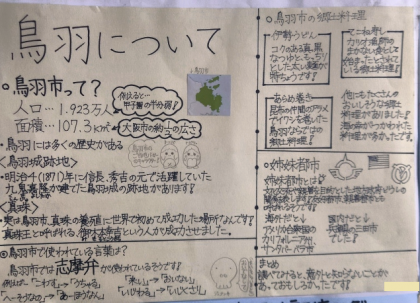 鳥羽について
○鳥羽市って?
人口…1.923万人
面積…107.3km²
例えると…
甲子園の半分弱!
大阪市の約½の広さ
・鳥羽には多くの歴史がある
〈鳥羽城跡地〉
明治4(1871)年に信長、秀吉の元で活躍していた
九鬼嘉隆が建てた鳥羽城の跡地があります!
〈真珠〉
実は鳥羽市、真珠の養殖に世界で初めて成功した場所なんです!
真珠王と呼ばれる、御木本幸吉という人が成功させました。
○鳥羽市で使われている言葉は?
鳥羽市では志摩弁が使われているそうです!
例えば…「こわす」→「つちゃる」
○鳥羽市の郷土料理
伊勢うどん
コクのある真黒
なつゆと、モッチリ
とした太い麺が
特ちょうです!
てこね寿し
カツオ漁師の
まかない食として
始まったとされて
いる郷土料理!
あらめ巻き
昆布の仲間のアラメ
でイワシを巻いた
鳥羽ならではの
郷土料理!
他にもたこさんの
おいしそうな郷土
料理がありました!
海の幸がつかわれた
○姉妹都市
姉妹都市とは
海外だと↓
アメリカ合衆国の
カリフォルニア州
サンタバーバラ市
国内だと↓
兵庫県の三田市
でした!
まとめ
調べてみると、意外と知らないことが
あっておもしろかったです!